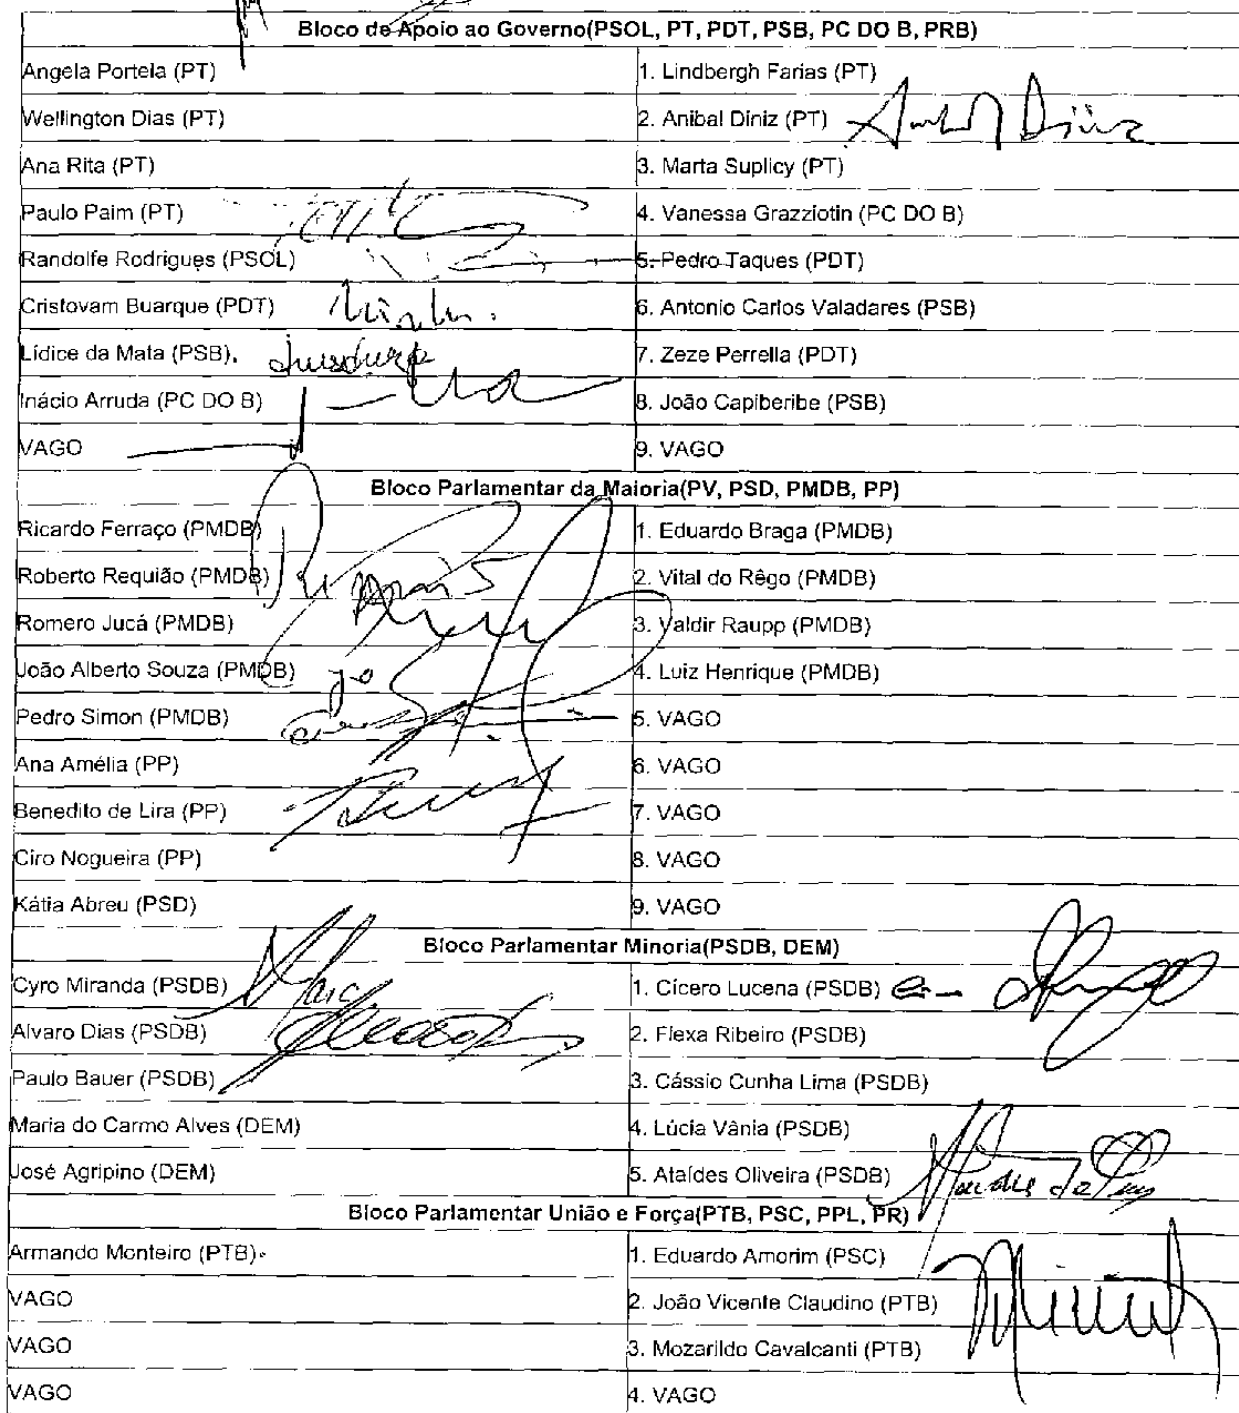 Bloco de Apoio ao Governo(PSOL, PT, PDT, PSB, PC DO B, PRB)
Angela Portela (PT) 1. Lindbergh Farias (PT)
Wellington Dias (PT) 2. Anibal Diniz (PT) Anibal Diniz
Ana Rita (PT) 3. Marta Suplicy (PT)
Paulo Paim (PT) 4. Vanessa Grazziotin (PC DO B)
Randolfe Rodrigues (PSOL) 5. Pedro Taques (PDT)
Cristovam Buarque (PDT) 6. Antonio Carlos Valadares (PSB)
Lídice da Mata (PSB), 7. Zeze Perrella (PDT)
Inácio Arruda (PC DO B) 8. João Capiberibe (PSB)
VAGO 9. VAGO
Bloco Parlamentar da Maioria(PV, PSD, PMDB, PP)
Ricardo Ferraço (PMDB) 1. Eduardo Braga (PMDB)
Roberto Requião (PMDB) 2. Vital do Rêgo (PMDB)
Romero Jucá (PMDB) 3. Valdir Raupp (PMDB)
João Alberto Souza (PMDB) 4. Luiz Henrique (PMDB)
Pedro Simon (PMDB) 5. VAGO
Ana Amélia (PP) 6. VAGO
Benedito de Lira (PP) 7. VAGO
Ciro Nogueira (PP) 8. VAGO
Kátia Abreu (PSD) 9. VAGO
Bloco Parlamentar Minoria(PSDB, DEM)
Cyro Miranda (PSDB) 1. Cícero Lucena (PSDB)
Alvaro Dias (PSDB) 2. Flexa Ribeiro (PSDB)
Paulo Bauer (PSDB) 3. Cássio Cunha Lima (PSDB)
Maria do Carmo Alves (DEM) 4. Lúcia Vânia (PSDB)
José Agripino (DEM) 5. Ataídes Oliveira (PSDB)
Bloco Parlamentar União e Força(PTB, PSC, PPL, PR)
Armando Monteiro (PTB) 1. Eduardo Amorim (PSC)
VAGO 2. João Vicente Claudino (PTB)
VAGO 3. Mozarildo Cavalcanti (PTB)
VAGO 4. VAGO